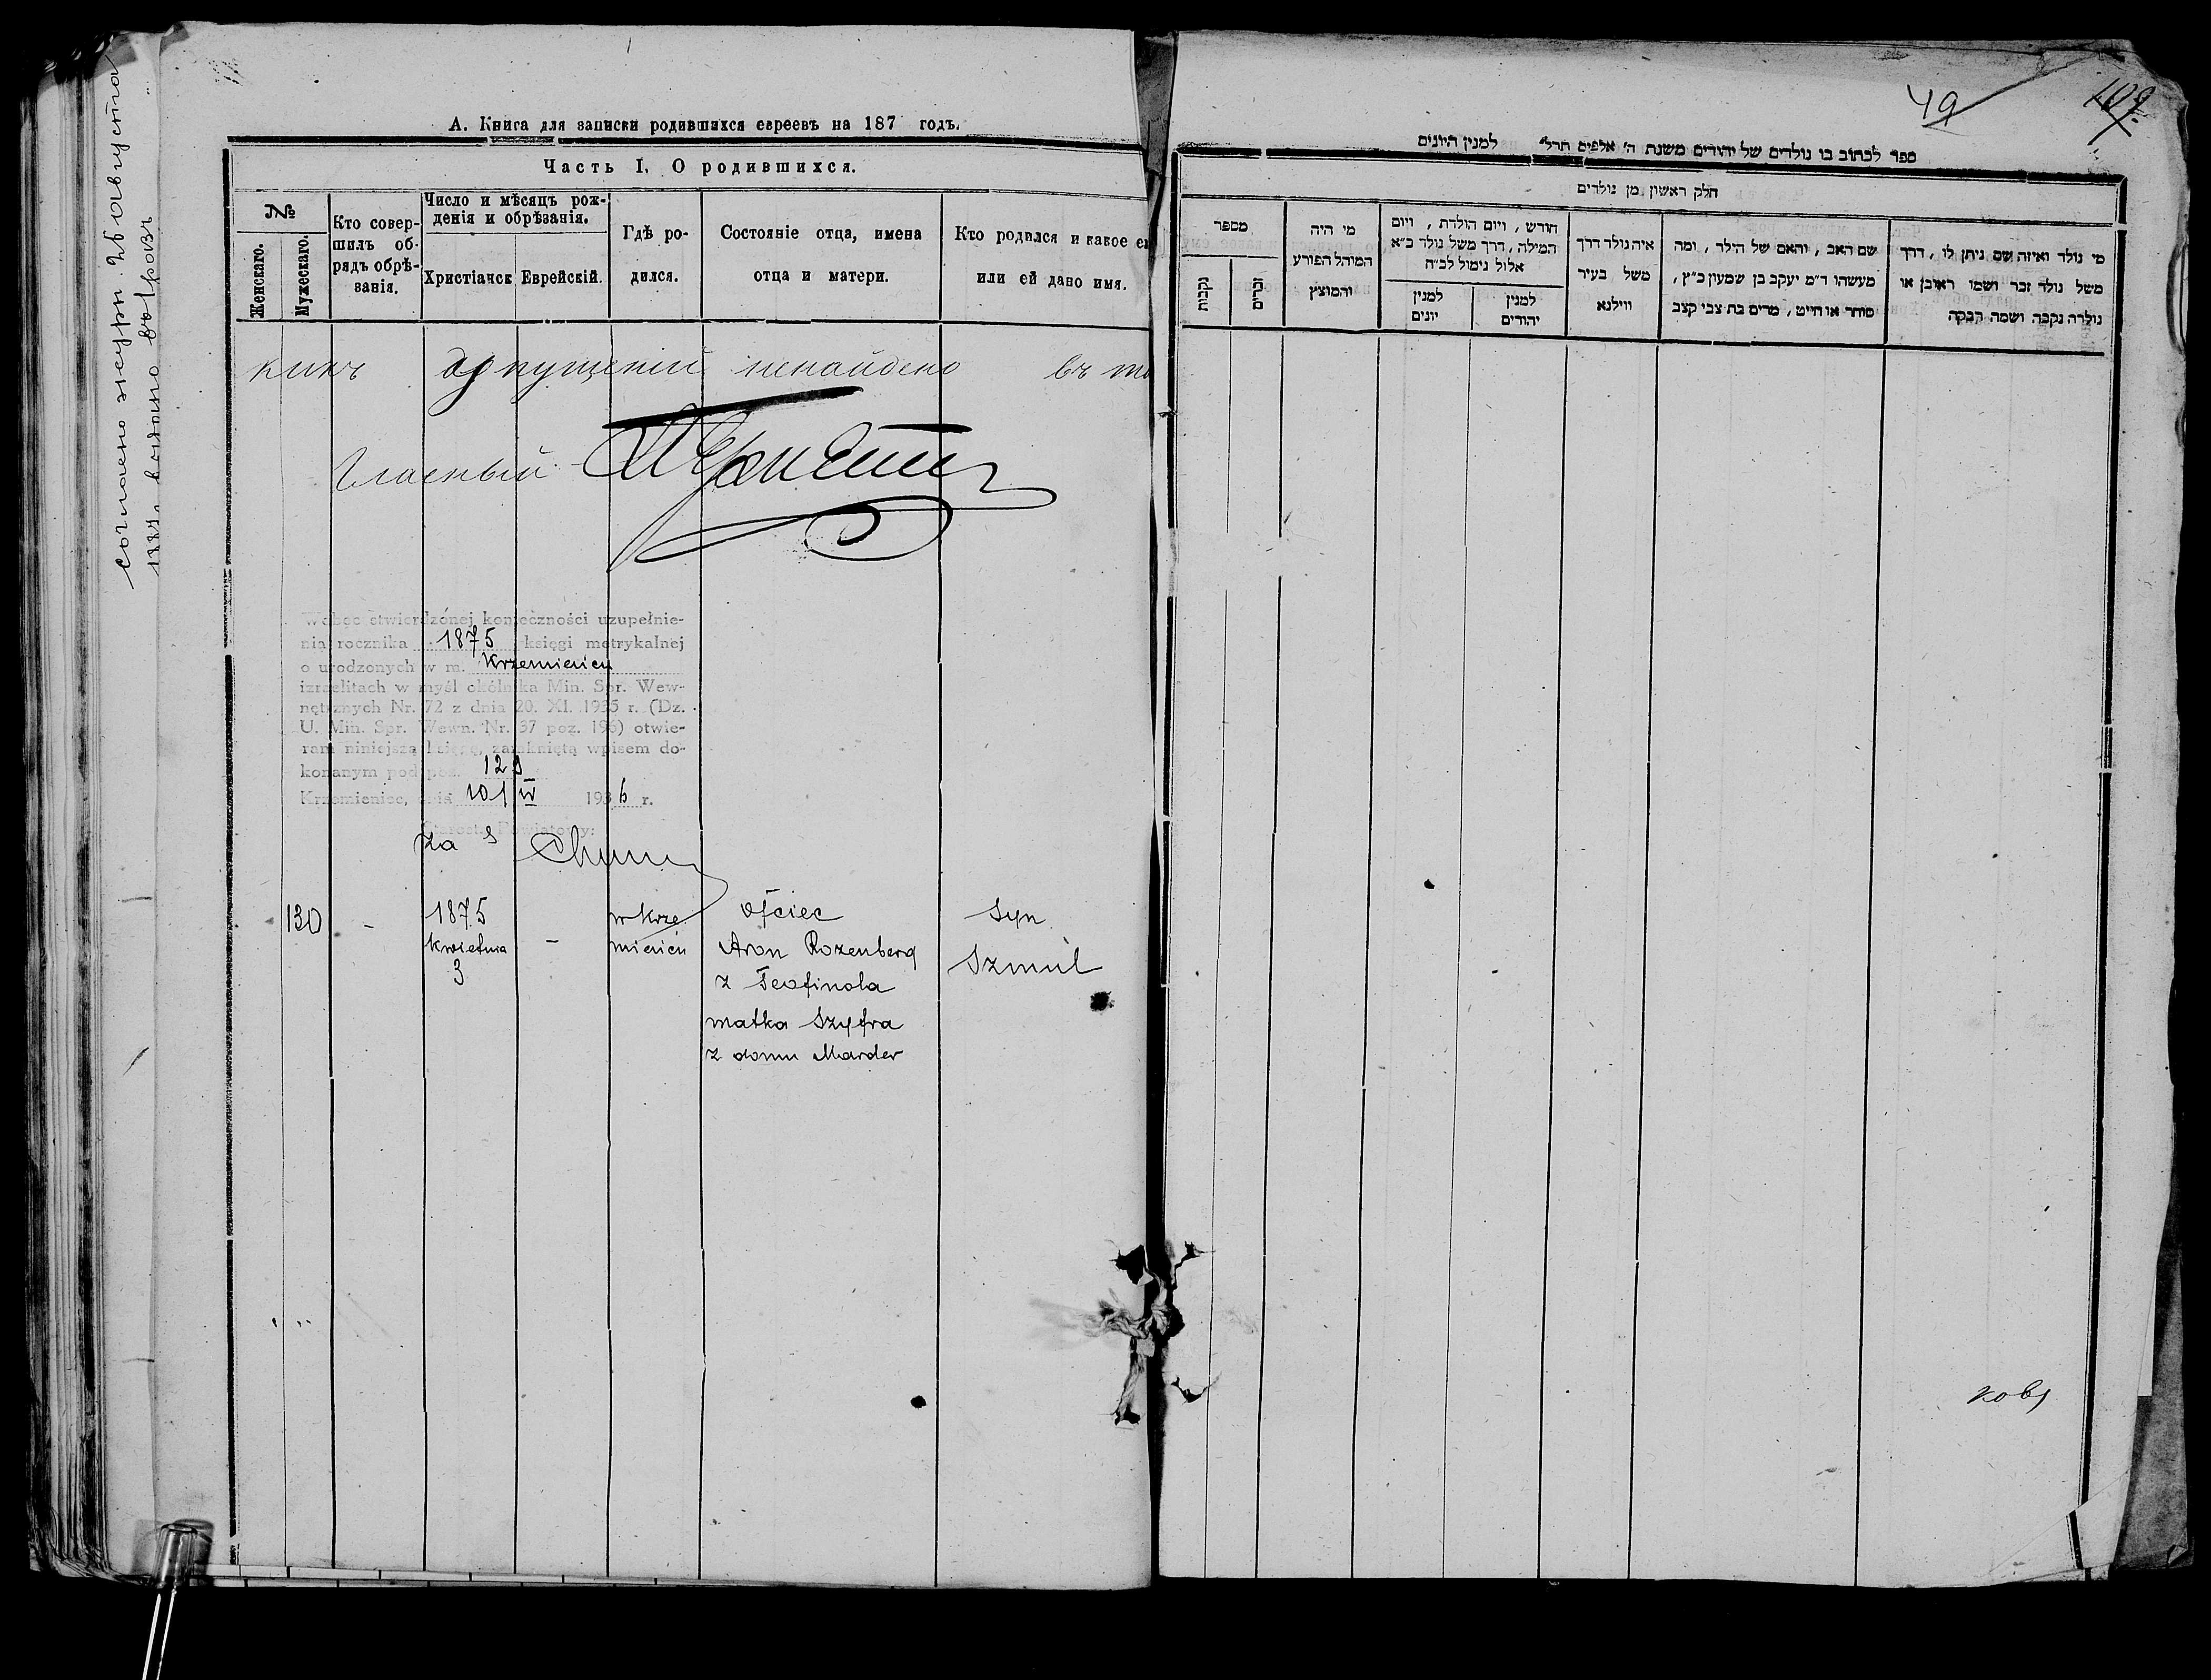 А. Книга для записки родившихся евреевъ на 187 годъ.
Часть I. О родившихся.
№
Женскаго.
Мужескаго.
Кто совер-
шилъ об-
рядъ обрѣ-
занія.
Число и мѣсяцъ рож-
денія и обрѣзанія.
Христіанск
Еврейскій.
Гдѣ ро-
дился.
Состояніе отца, имена
отца и матери.
Кто родился и какое ем
или ей дано имя.
допущеній ненайдено въ
Гласный
Wobec stwierdzonej konieczności uzupełnie-
nia rocznika 1875 księgi metrykalnej
o urodzonych w m. Krzemieńcu
izraelitach w myśl okólnika Min. Spr. Wew-
nętrznych Nr. 72 z dnia 20. XI. 1935 r. (Dz.
U. Min. Spr. Wewn. Nr. 37 poz. 196) otwie-
ram niniejszą księgę, zamkniętą wpisem do-
konanym pod poz. 129
Krzemieniec, dnia 10/IV 1936 r.
Starosta Powiatowy:
za
130
-
1875
kwietnia
3
-
w Krze
mieńcu
ojciec
Aron Rozenberg
z Teofinola
matka Szyfra
z domu Marder
syn
Szmul
согласно журн. 26 августа
49
109
ספר לכתוב בו נולדים של יהודים משנת ה' אלפים תרל" למנין היונים
חלק ראשון מן נולדים
מספר
נקבות
זכרים
מי היה
המוהל הפורע
והמוצץ
חודש, ויום הולדת, ויום
המילה, דרך משל נולד כ"א
אלול נימול לכ"ח
למנין
יונים
למנין
יהודים
איה נולד דרך
משל בעיר
ווילנא
שם האב, והאם של הילד, ומה
מעשהו ד"מ יעקב בן שמעון כ"ץ,
סוחר או חייט, מרים בת צבי קצב
מי נולד ואיזה שם ניתן לו, דרך
משל נולד זכר ושמו ראובן או
נולדה נקבה ושמה רבקה